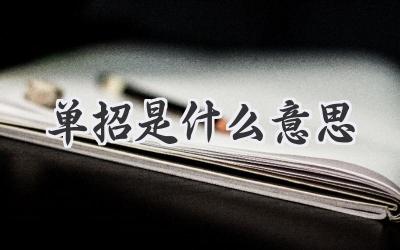 单招是什么意思